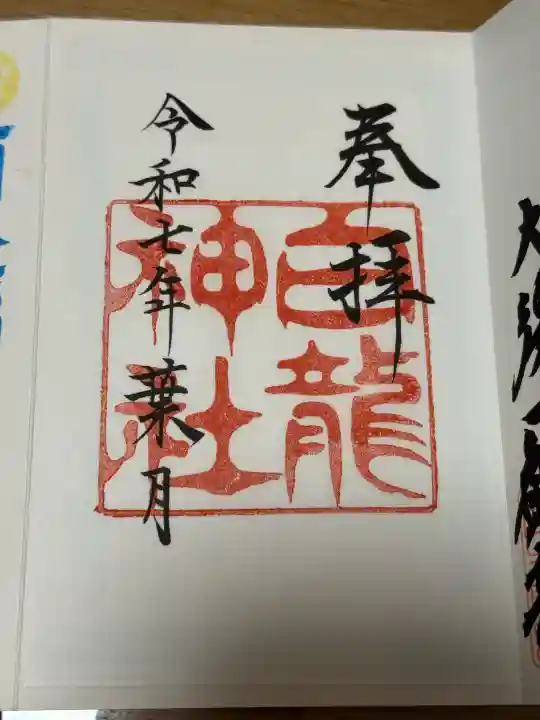 奉拝
白龍
神社
令和七年 葉月